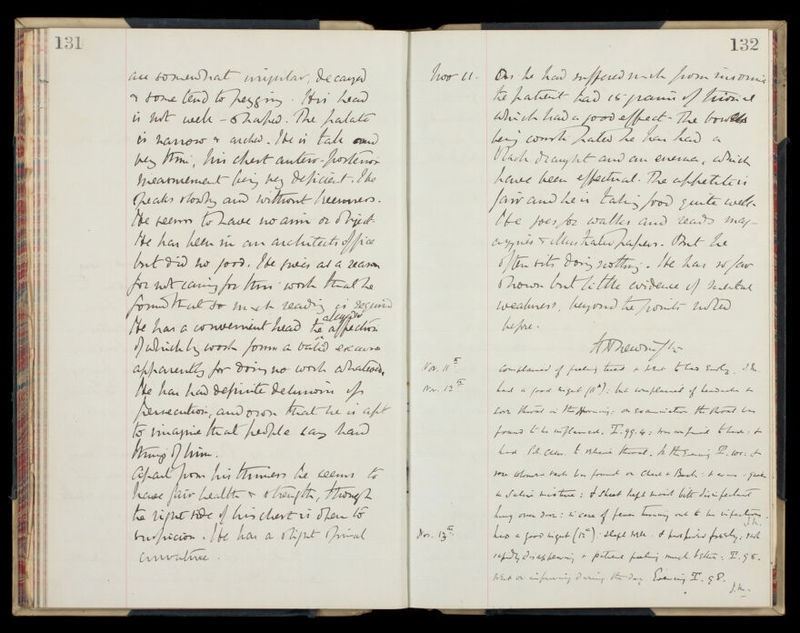 131
are somewhat irregular, decayed
& some tend to pegging. His head
is not well-shaped. The palate
is narrow & arched. He is tall and
very thin, his chest antero-posterior
measurement being very deficient. He
speaks slowly and without keenness.
He seems to have no aim or object.
He has been in an architects office
but did no good. He gives as a reason
for not caring for this work that he
found that so much reading is required
He has a convenient head the alleged affection
of which by work forms a valid excuse
apparently for doing no work whatever.
He has had definite delusions of
persecution, and owns that he is apt
to imagine that people say hard
things of him.
Apart from his thinness he seems to
have fair health & strength, though
the right side of his chest is open to
suspicion. He has a slight spinal
curvature.
132
Nov 11. As he had suffered much from insomnia
the patient had 15 grains of trional
which had a good effect. The bowels
being constipated he has had a
black draught and an enema, which
have been effectual. The appetite is
fair and he is taking food quite well.
He goes for walks and reads mag-
azines & illustrated papers. But he
often sits doing nothing. He has so far
shown but little evidence of mental
weakness, beyond the points noted
before.
Nov. 11th complained of feeling tired & went to bed early.
Nov. 12th had a good night (11th): but complained of headache &
sore throat in the morning: on examination the throat was
found to be inflamed. T. 99.4: was confined to bed: &
had to relieve throat. In the evening T. 100: &
rash was found on Chest & Back:
a saline mixture: & sheet kept moist with disinfectant
hung over door: in case of fever turning out to be infectious.
Nov. 13th had a good night (12th): slept well & perspired freely, rash
rapidly disappearing & patient feeling much better: T. 98.
Went on improving during the day Evening T. 98.